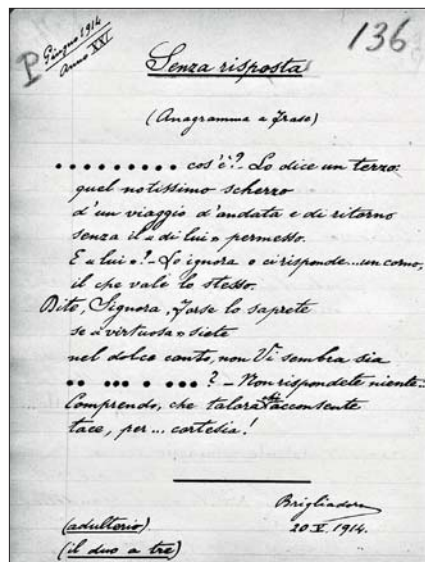 Giugno 1914
Anno XXI
P
136
Senza risposta
(Anagramma a frase)
• • • • • • • • • cos'è? - Lo dice un terzo:
quel notissimo scherzo
d'un viaggio d'andata e di ritorno
senza il « di lui » permesso.
E « lui »? - Lo ignora o ci risponde... un corno,
il che vale lo stesso.
Dite, Signora, forse lo saprete
se « virtuosa » siete
nel dolce canto, non Vi sembra sia
•• ••• • •••? - Non rispondete niente...
Comprendo, che talora chi acconsente
tace, per... cortesia!
Brigliadoro
20 V. 1914.
(adulterio)
(il duo a tre)